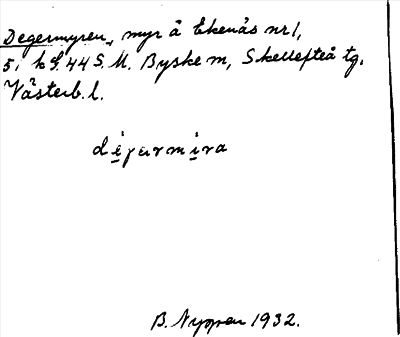 Degermyren, myr å Ekenäs nr 1,
5, kf. 44 S. M. Byske sn, Skellefteå tg,
Västerb. l.
B. Nyman 1932.